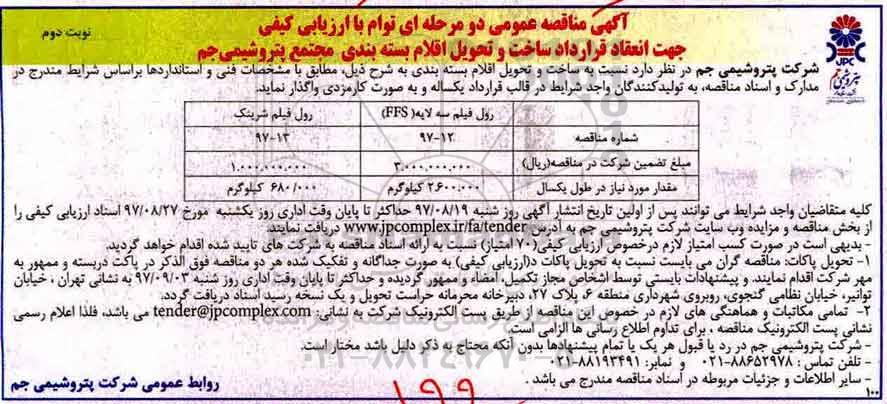 آگهی مناقصه عمومی دو مرحله ای توام با ارزیابی کیفی
نوبت دوم
جهت انعقاد قرارداد ساخت و تحویل اقلام بسته بندی مجتمع پتروشیمی‌جم
JPC
شرکت پتروشیمی جم در نظر دارد نسبت به ساخت و تحویل اقلام بسته بندی به شرح ذیل، مطابق با مشخصات فنی و استانداردها براساس شرایط مندرج در
مدارک و اسناد مناقصه، به تولیدکنندگان واجد شرایط در قالب قرارداد یکساله و به صورت کارمزدی واگذار نماید.
رول فیلم سه لایه( FFS) رول فیلم شرینک
شماره مناقصه ۹۷-۱۲ ۹۷-۱۳
مبلغ تضمین شرکت در مناقصه(ریال) ۳،۰۰۰،۰۰۰،۰۰۰ ۱،۰۰۰،۰۰۰،۰۰۰
مقدار مورد نیاز در طول یکسال ۲،۶۰۰،۰۰۰ کیلوگرم ۶۸۰/۰۰۰ کیلوگرم
کلیه متقاضیان واجد شرایط می توانند پس از اولین تاریخ انتشار آگهی روز شنبه ۹۷/۰۸/۱۹ حداکثر تا پایان وقت اداری روز یکشنبه مورخ ۹۷/۰۸/۲۷ اسناد ارزیابی کیفی را
از بخش مناقصه و مزایده وب سایت شرکت پتروشیمی جم به آدرس www.jpcomplex.ir/fa/tender دریافت نمایند.
- بدیهی است در صورت کسب امتیاز لازم درخصوص ارزیابی کیفی(۷۰ امتیاز) نسبت به ارائه اسناد مناقصه به شرکت های تایید شده اقدام خواهد گردید.
۱- تحویل پاکات: مناقصه گران می بایست نسبت به تحویل پاکات د(ارزیابی کیفی) به صورت جداگانه و تفکیک شده هر دو مناقصه فوق الذکر در پاکت دربسته و ممهور به
مهر شرکت اقدام نمایند. و پیشنهادات بایستی توسط اشخاص مجاز تکمیل، امضاء و ممهور گردیده و حداکثر تا پایان وقت اداری روز شنبه ۹۷/۰۹/۰۳ به نشانی تهران ، خیابان
توانیر، خیابان نظامی گنجوی، روبروی شهرداری منطقه ۶، پلاک ۲۷، دبیرخانه محرمانه حراست تحویل و یک نسخه رسید اسناد دریافت گردد.
۲- تمامی مکاتبات و هماهنگی های لازم در خصوص این مناقصه از طریق پست الکترونیک شرکت به نشانی: tender@jpcomplex.com می باشد، فلذا اعلام رسمی
نشانی پست الکترونیک مناقصه ، برای تداوم اطلاع رسانی ها الزامی است.
- شرکت پتروشیمی جم در رد یا قبول هر یک یا تمام پیشنهادها بدون آنکه محتاج به ذکر دلیل باشد مختار است.
- تلفن تماس : ۸۸۶۵۲۹۷۸-۰۲۱ و نمابر: ۸۸۱۹۳۴۹۱-۰۲۱
- سایر اطلاعات و جزئیات مربوطه در اسناد مناقصه مندرج می باشد .
روابط عمومی شرکت پتروشیمی جم
۱۰۰
۱۹۹